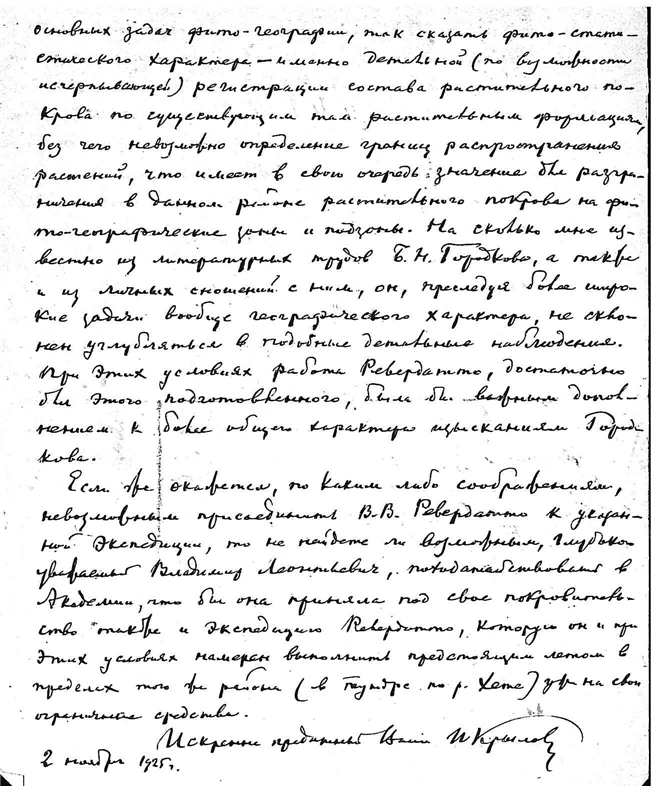 основных задач фито-географии, так сказать фито-стати-
стического характера – именно детальной (по возможности
исчерпывающей) регистрации состава растительного по-
крова по существующим там растительным формациям,
без чего невозможно определение границ распространения
растений, что имеет в свою очередь значение для разгра-
ничения в данном районе растительного покрова на фи-
то-географические зоны и подзоны. На сколько мне из-
вестно из литературных трудов Б.Н. Городкова, а также
и из личных сношений с ним, он, преследуя более широ-
кие задачи вообще географического характера, не скло-
нен углубляться в подобные детальные наблюдения.
При этих условиях работа Ревердатто, достаточно
для этого подготовленного, была бы важным допол-
нением к более общего характера изысканиям Город-
кова.
Если же окажется, по каким либо соображениям,
невозможным присоединить В.В. Ревердатто к указан-
ной Экспедиции, то не найдете ли возможным, глубоко
уважаемый Владимир Леонтьевич, походатайствовать в
Академии, что бы она приняла под свое покровитель-
ство также и экспедицию Ревердатто, которую он и при
этих условиях намерен выполнить предстоящим летом в
пределах того же района (в тундре по р. Хете) уж на свои
ограниченные средства.
Искренне преданный Вам П Крылов
2 ноября 1925 г.